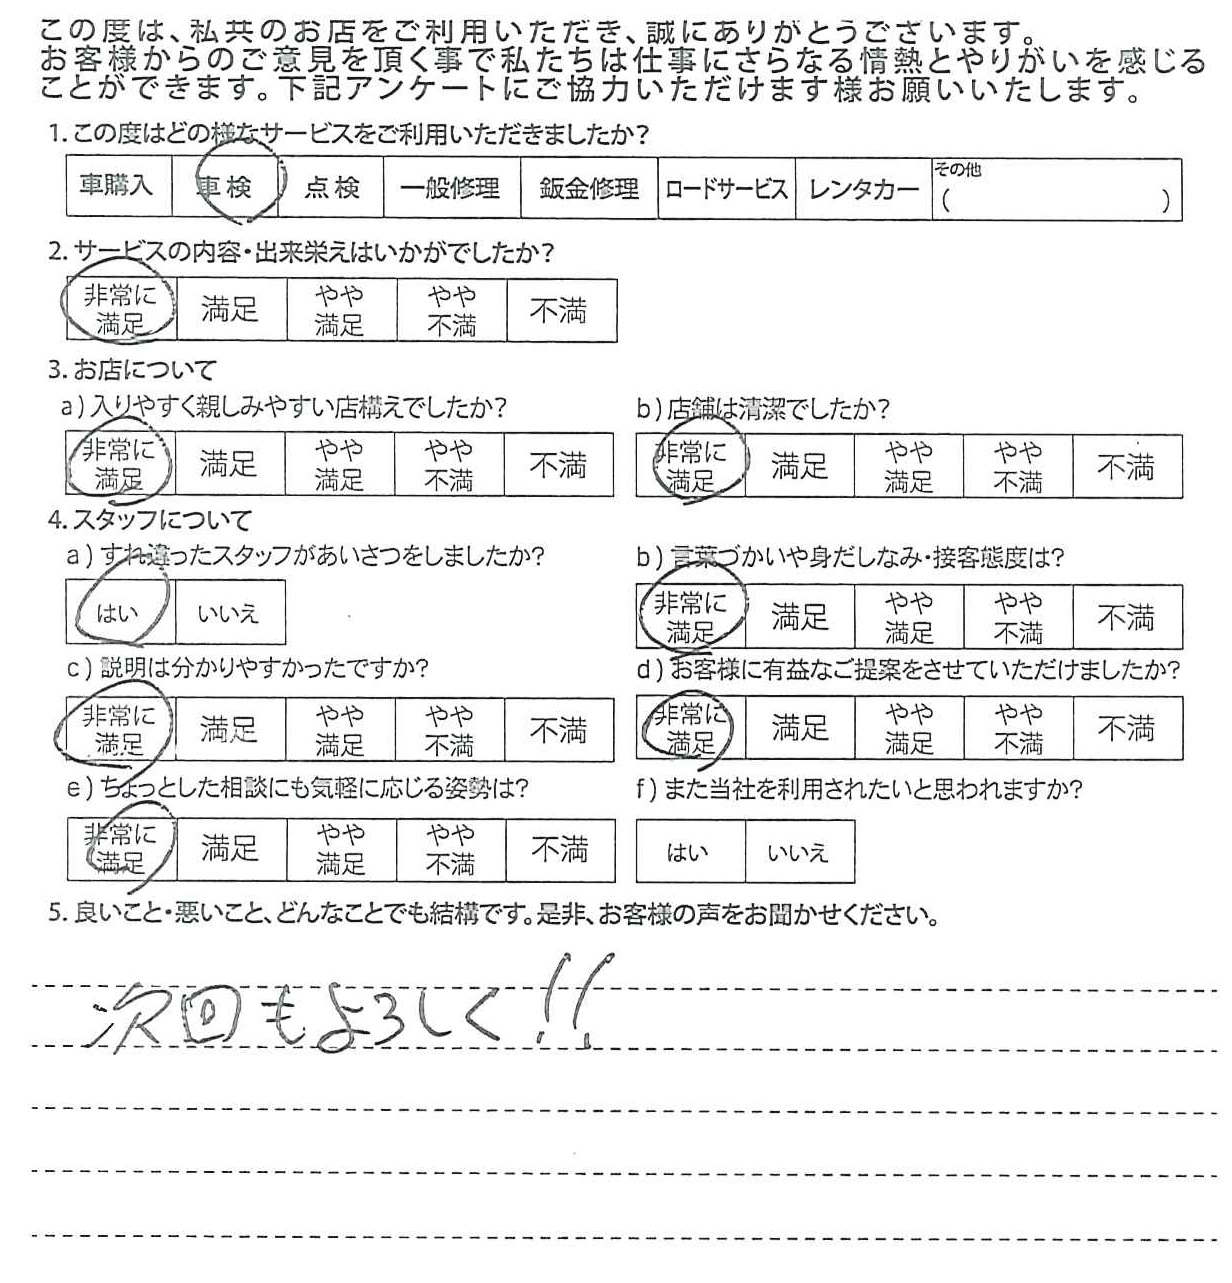 この度は、私共のお店をご利用いただき、誠にありがとうございます。
お客様からのご意見を頂く事で私たちは仕事にさらなる情熱とやりがいを感じる
ことができます。下記アンケートにご協力いただけます様お願いいたします。
1. この度はどの様なサービスをご利用いただきましたか?
車購入 車検 点検 一般修理 鈑金修理 ロードサービス レンタカー その他
( )
2. サービスの内容・出来栄えはいかがでしたか?
非常に満足 満足 やや満足 やや不満 不満
3. お店について
a) 入りやすく親しみやすい店構えでしたか?
非常に満足 満足 やや満足 やや不満 不満
b) 店舗は清潔でしたか?
非常に満足 満足 やや満足 やや不満 不満
4. スタッフについて
a) すれ違ったスタッフがあいさつをしましたか?
はい いいえ
b) 言葉づかいや身だしなみ・接客態度は?
非常に満足 満足 やや満足 やや不満 不満
c) 説明は分かりやすかったですか?
非常に満足 満足 やや満足 やや不満 不満
d) お客様に有益なご提案をさせていただけましたか?
非常に満足 満足 やや満足 やや不満 不満
e) ちょっとした相談にも気軽に応じる姿勢は?
非常に満足 満足 やや満足 やや不満 不満
f) また当社を利用されたいと思われますか?
はい いいえ
5. 良いこと・悪いこと、どんなことでも結構です。是非、お客様の声をお聞かせください。
次回もよろしく!!